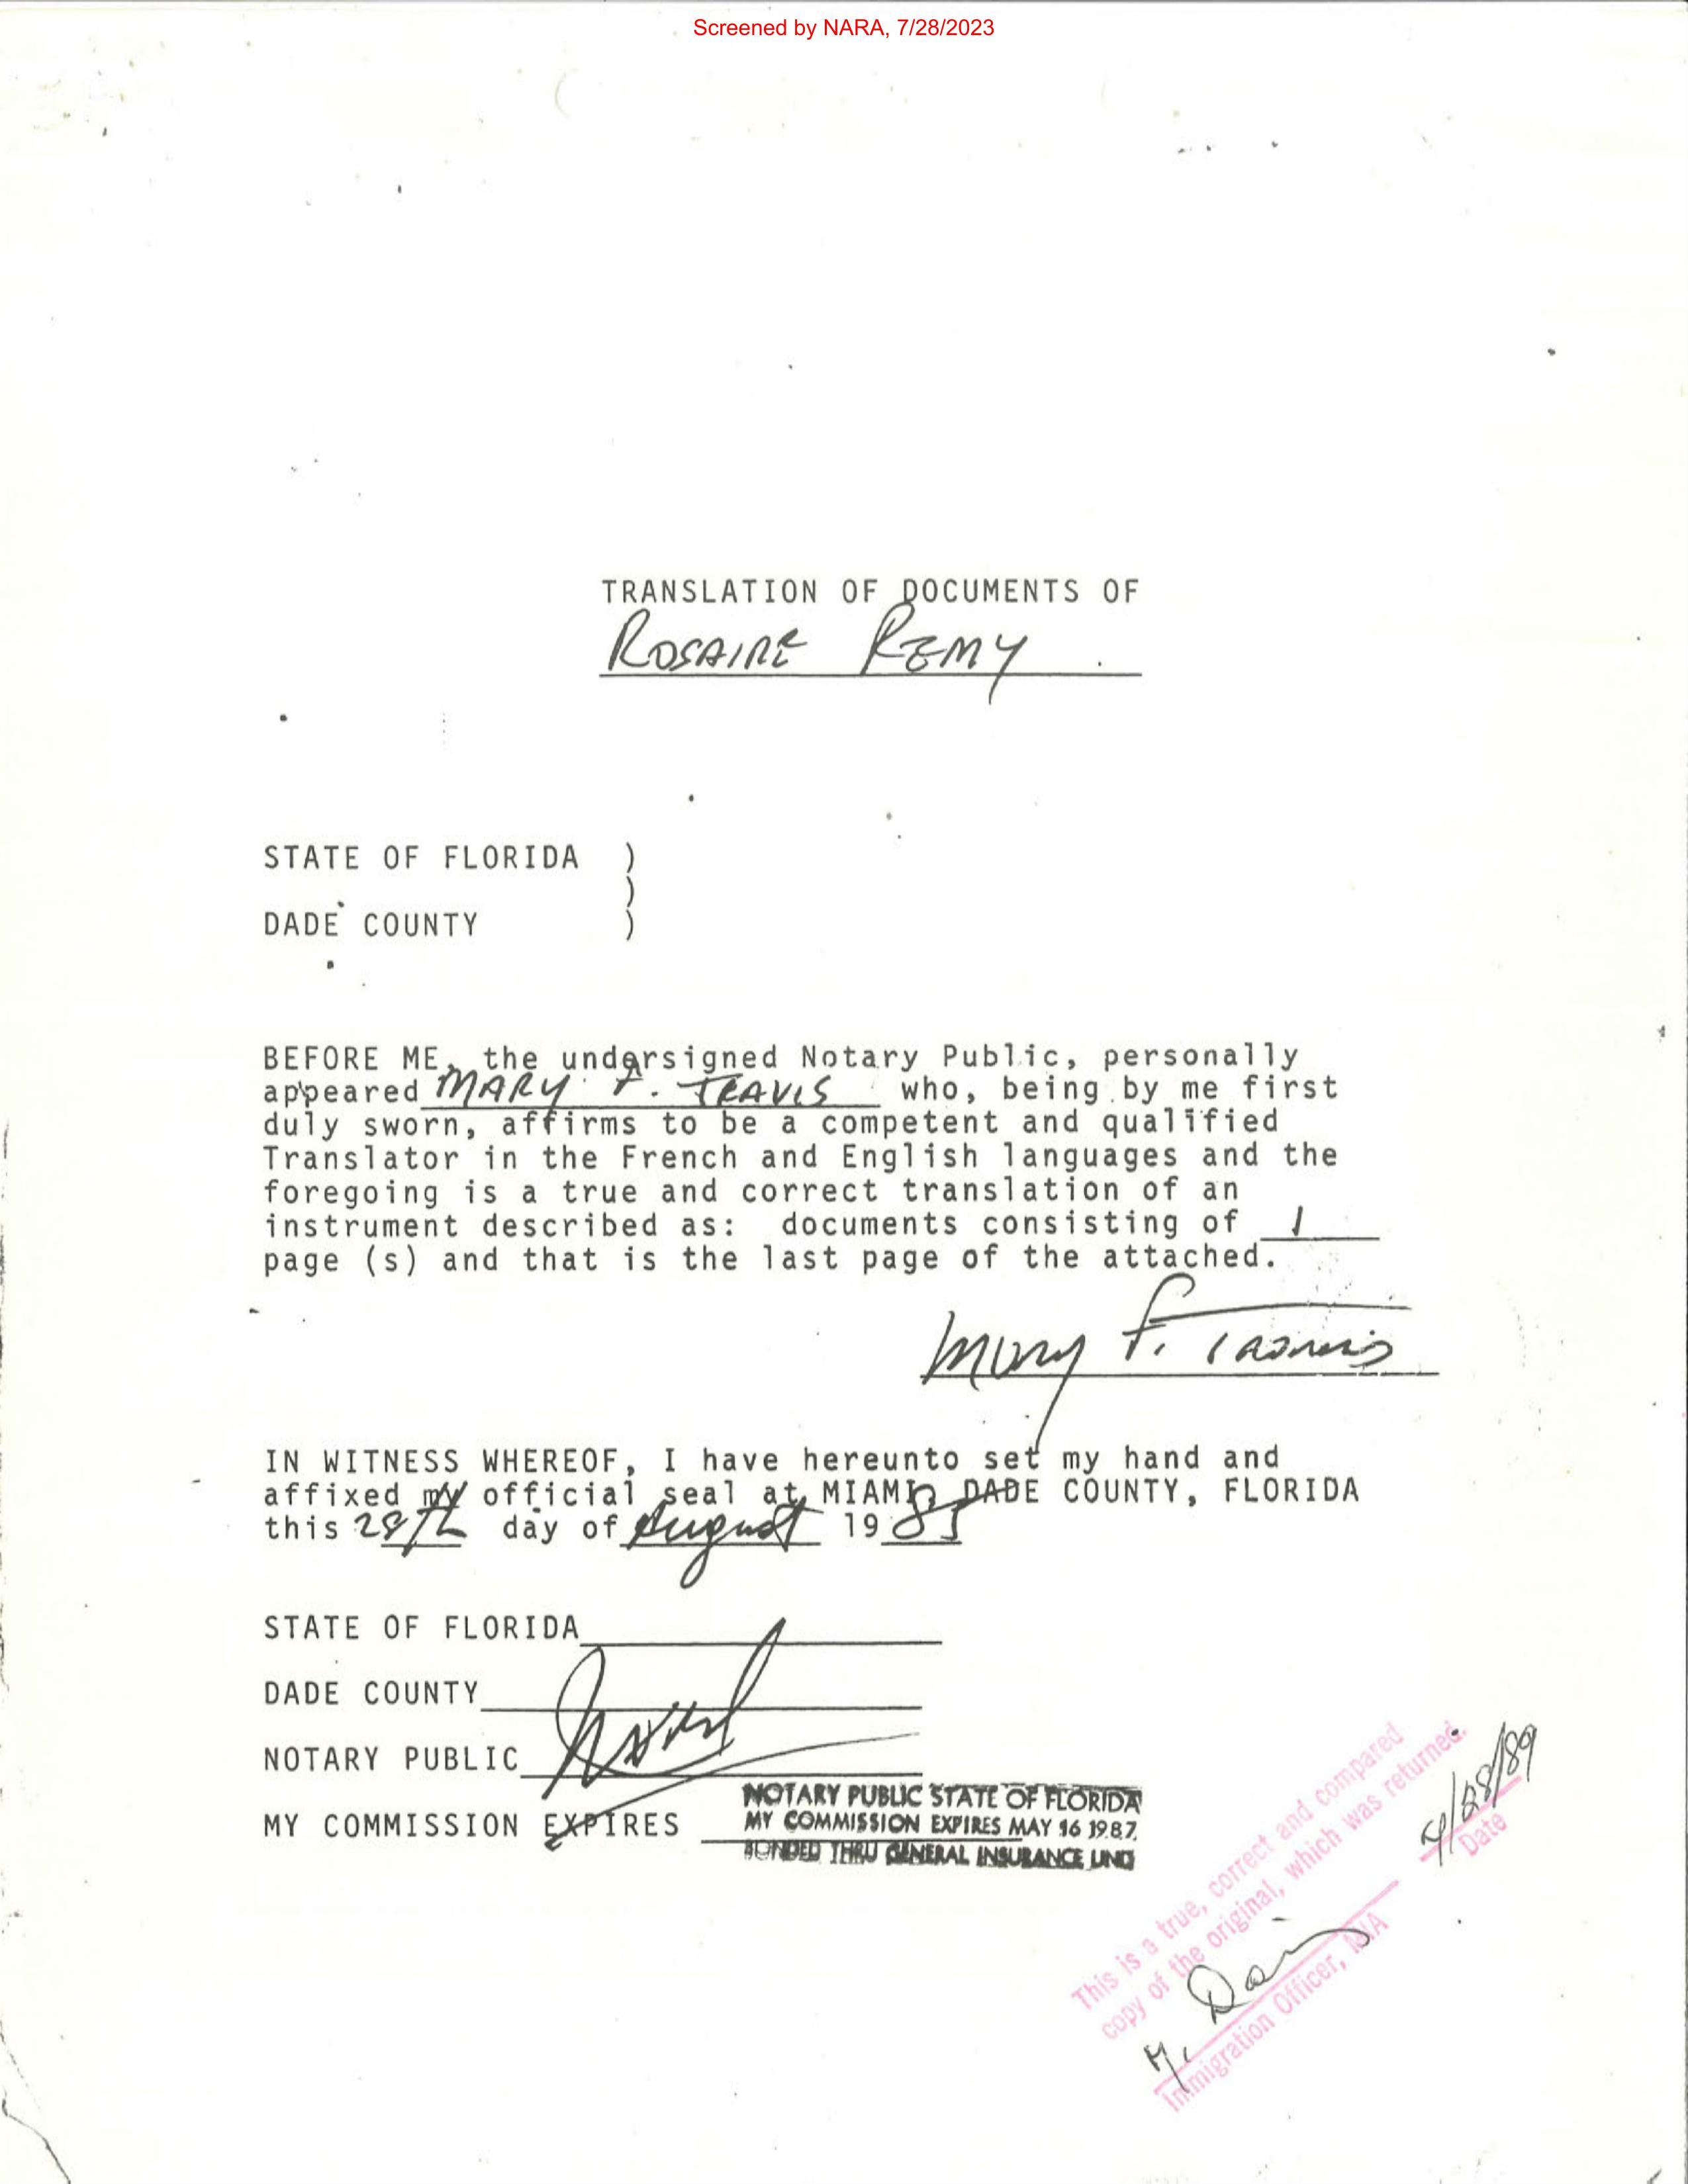 Screened by NARA, 7/28/2023
TRANSLATION OF DOCUMENTS OF
ROSAIRE REMY
STATE OF FLORIDA )
)
DADE COUNTY )
BEFORE ME, the undersigned Notary Public, personally
appeared MARY F. TRAVIS who, being by me first
duly sworn, affirms to be a competent and qualified
Translator in the French and English languages and the
foregoing is a true and correct translation of an
instrument described as: documents consisting of 1
page (s) and that is the last page of the attached.
Mary F. Travis
IN WITNESS WHEREOF, I have hereunto set my hand and
affixed my official seal at MIAMI, DADE COUNTY, FLORIDA
this 28th day of August 1985
STATE OF FLORIDA
DADE COUNTY
NOTARY PUBLIC
MY COMMISSION EXPIRES
NOTARY PUBLIC STATE OF FLORIDA
MY COMMISSION EXPIRES MAY 16 1987
BONDED THRU GENERAL INSURANCE UND
This is a true, correct and compared
copy of the original, which was returned.
4/28/89
Date
Immigration Officer, MIA